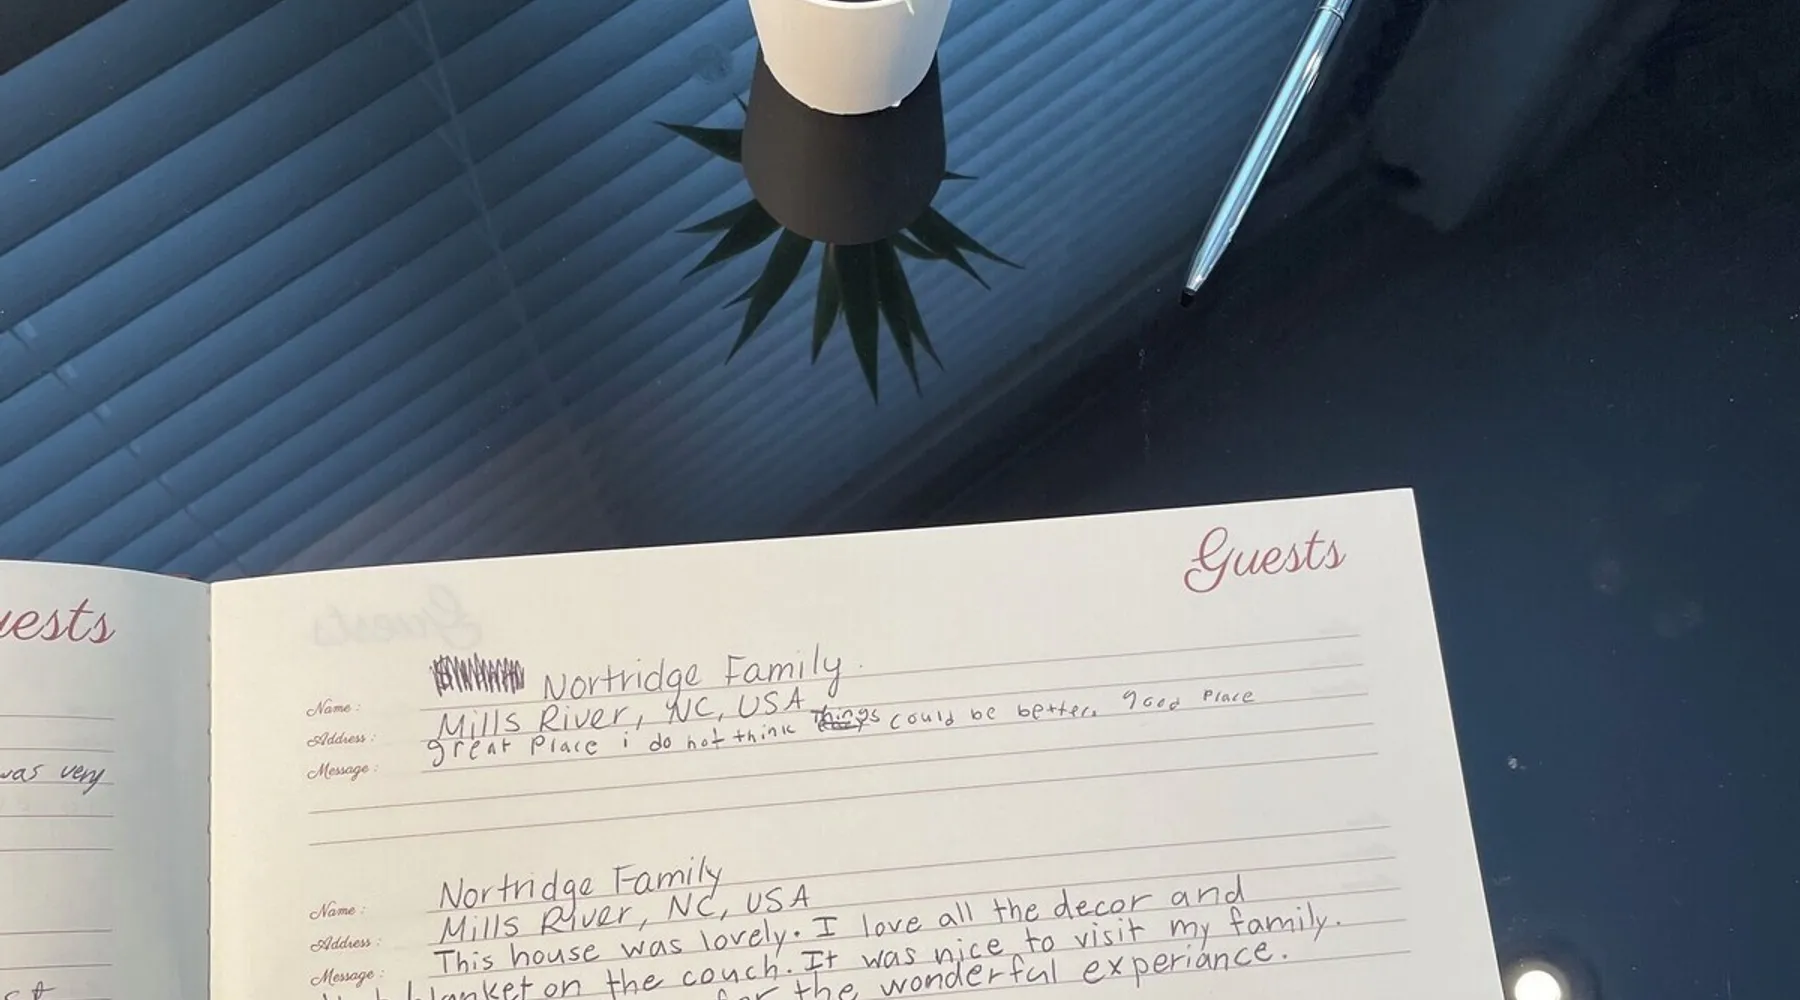 Guests
uests
was very
Name : Nortridge Family
Address : Mills River, NC, USA
Message : great Place i do not think things could be better. good Place
Name : Nortridge Family
Address : Mills River, NC, USA
Message : This house was lovely. I love all the decor and
blanket on the couch. It was nice to visit my family.
for the wonderful experiance.